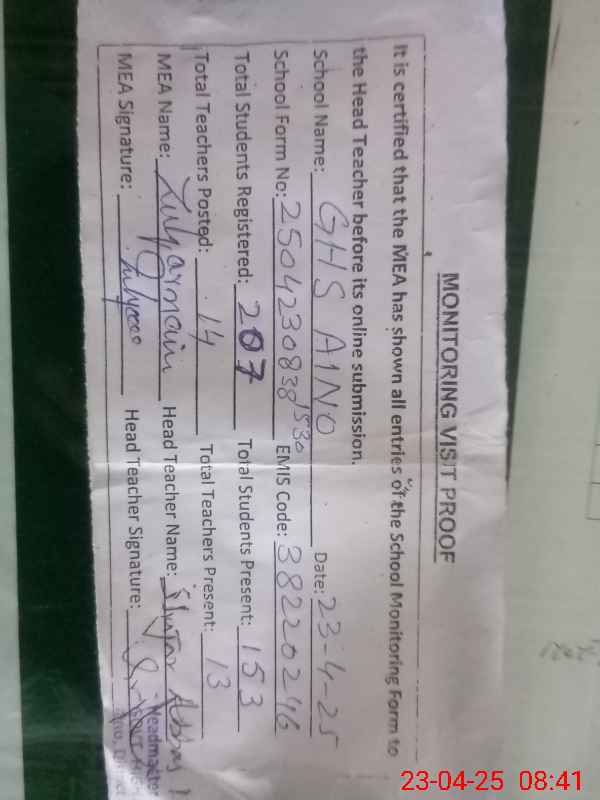 MONITORING VISIT PROOF
It is certified that the MEA has shown all entries of the School Monitoring Form to
the Head Teacher before its online submission.
School Name: GHS AINO Date: 23-4-25
School Form No: 2504230838 1530 EMIS Code: 38220246
Total Students Registered: 207 Total Students Present: 153
Total Teachers Posted: 14 Total Teachers Present: 13
MEA Name: Zulqarnain Head Teacher Name: Abbas
MEA Signature: Head Teacher Signature:
Headmaster
District
23-04-25 08:41